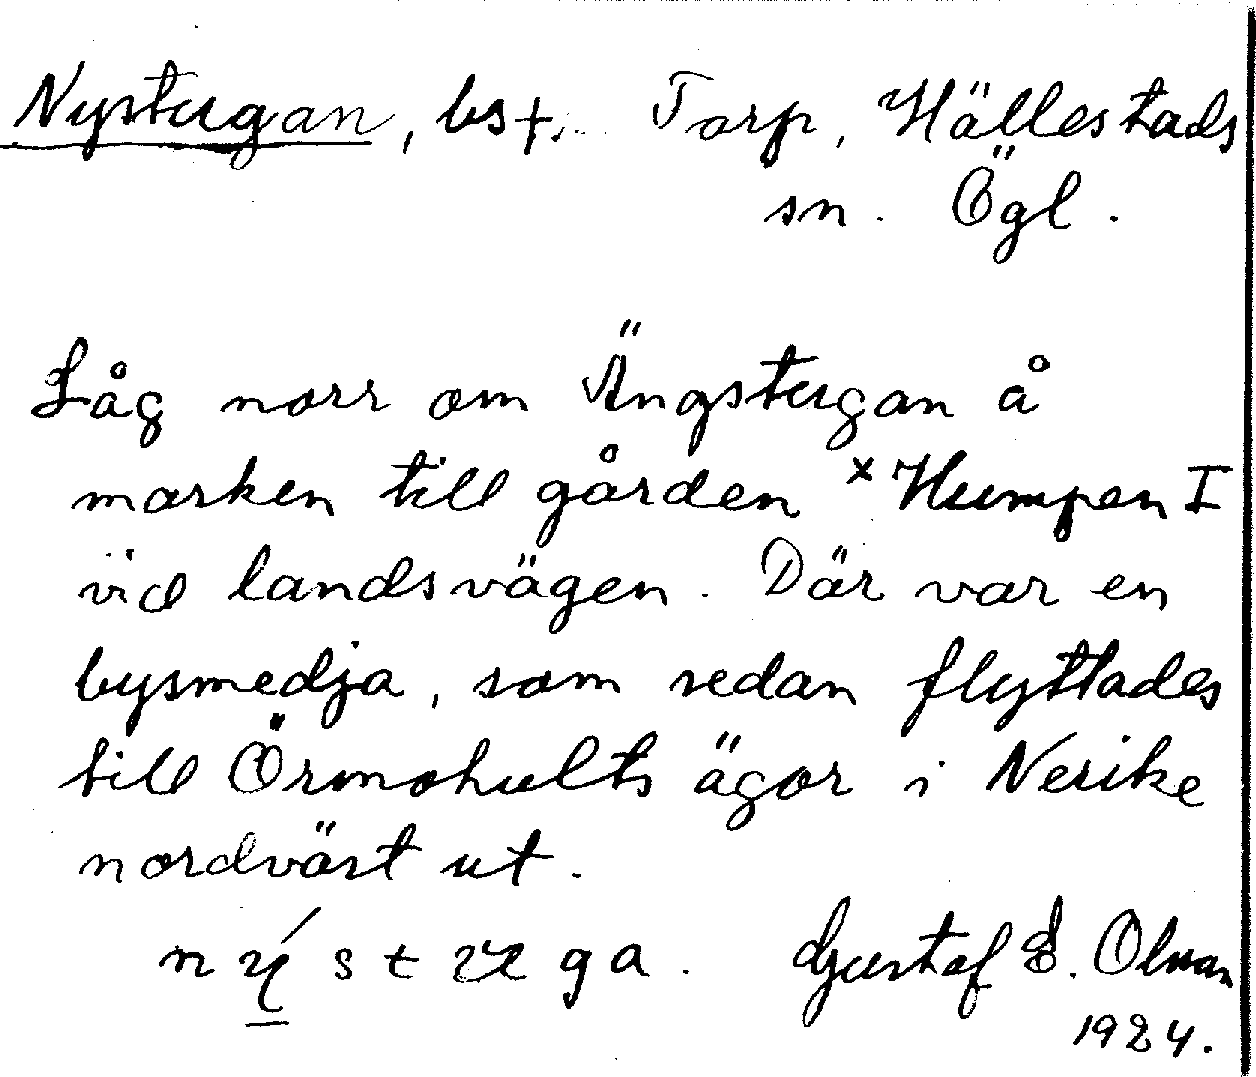 Nystugan, bst. Torp, Hällestads
sn. Ögl.
Låg norr om Ängstugan å
marken till gården ×Humpen I
vid landsvägen. Där var en
bysmedja, som sedan flyttades
till Örmohults ägor i Nerike
nordväst ut.
Gustaf E. Olman
1924.